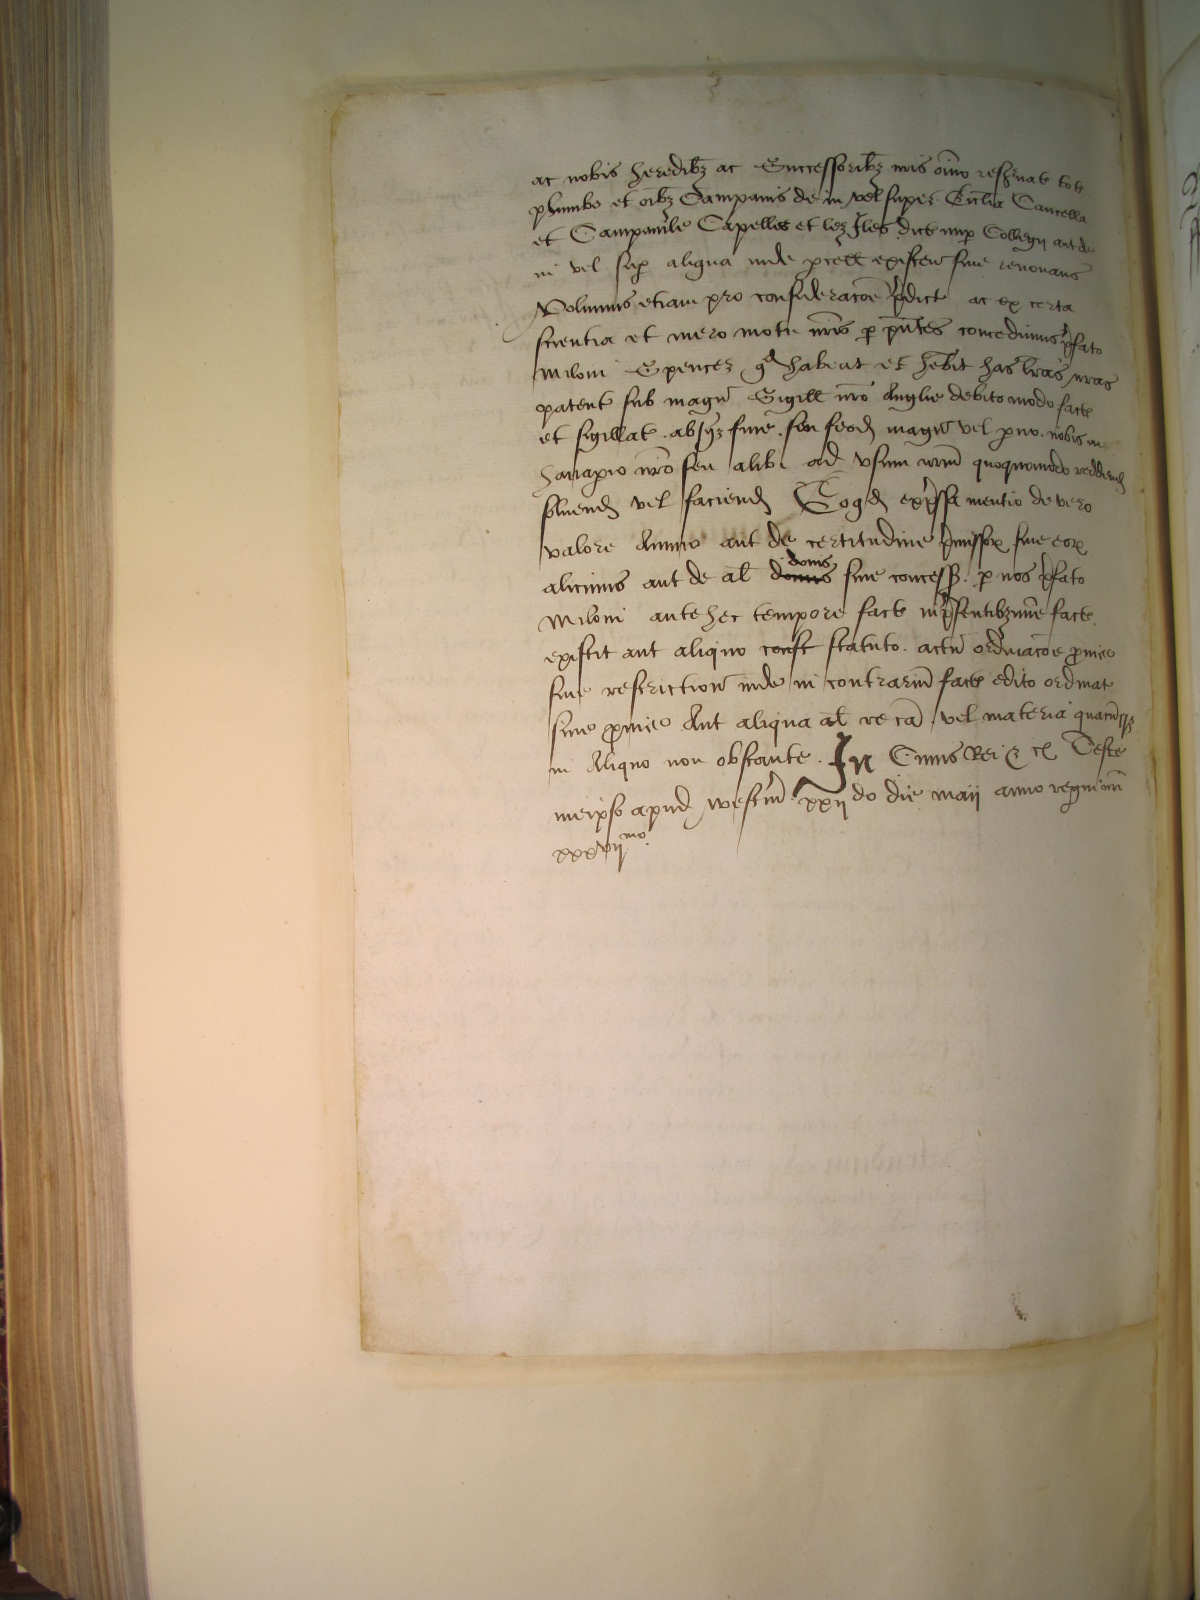 ac nobis heredibz ac Successoribz nris oīno reseruat tot
plumbo et oībz Campanis de in vel super Ecclia Cancella
et Campanile Capelles et lez Iles dict nup Collegij aut de
in vel sup aliqua inde pcell existen siue renouans
Volumus etiam pro consideracōe p̄dict ac ex certa
scientia et mero motu nrīs p pn̄tes concedimus p̄fato
Miloni Spencer qd habeat et hēbit has lrās nrās
patent sub magn Sigill nrō Anglie debito modo fact
et sigillat absqz fine seu feod magn vel paruo nobis in
hanapio nrō seu alibi ad vsum nrm̄ quoquomodo reddend
soluend vel faciend Eo qd exp̄ssa mentio de vero
valore Annuo aut de certitudine p̄missor siue eor
alicuius aut de al donis siue concess p nos p̄fato
Miloni ante hec tempore fact in p̄sentibz mīme fact
existit aut aliquo statuto actu ordinacōe prouis
siue restriction inde in contrariū fact edito ordinat
siue prouis Aut aliqua al re cā vel materia quacūqz
in Aliquo non obstante In Cuius Rei &c Teste
meipso apud westm̄ xxij do die maij anno regni nrī
xxxvij mo